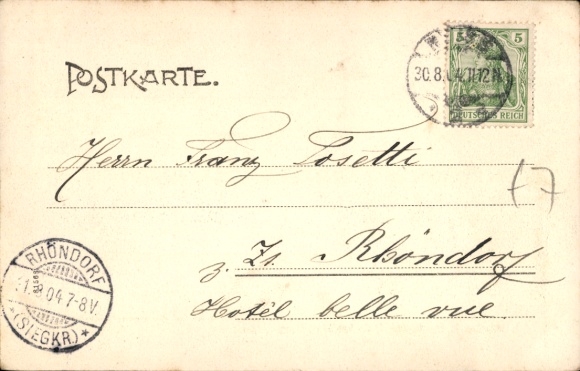 POSTKARTE.
5 5
DEUTSCHES REICH
30.8.04.11-12N
Herrn Franz Posetti
z. Zt. Rhöndorf
Hotêl belle vue.
RHÖNDORF
31.8.04.7-8V.
*(SIEGKR.)*